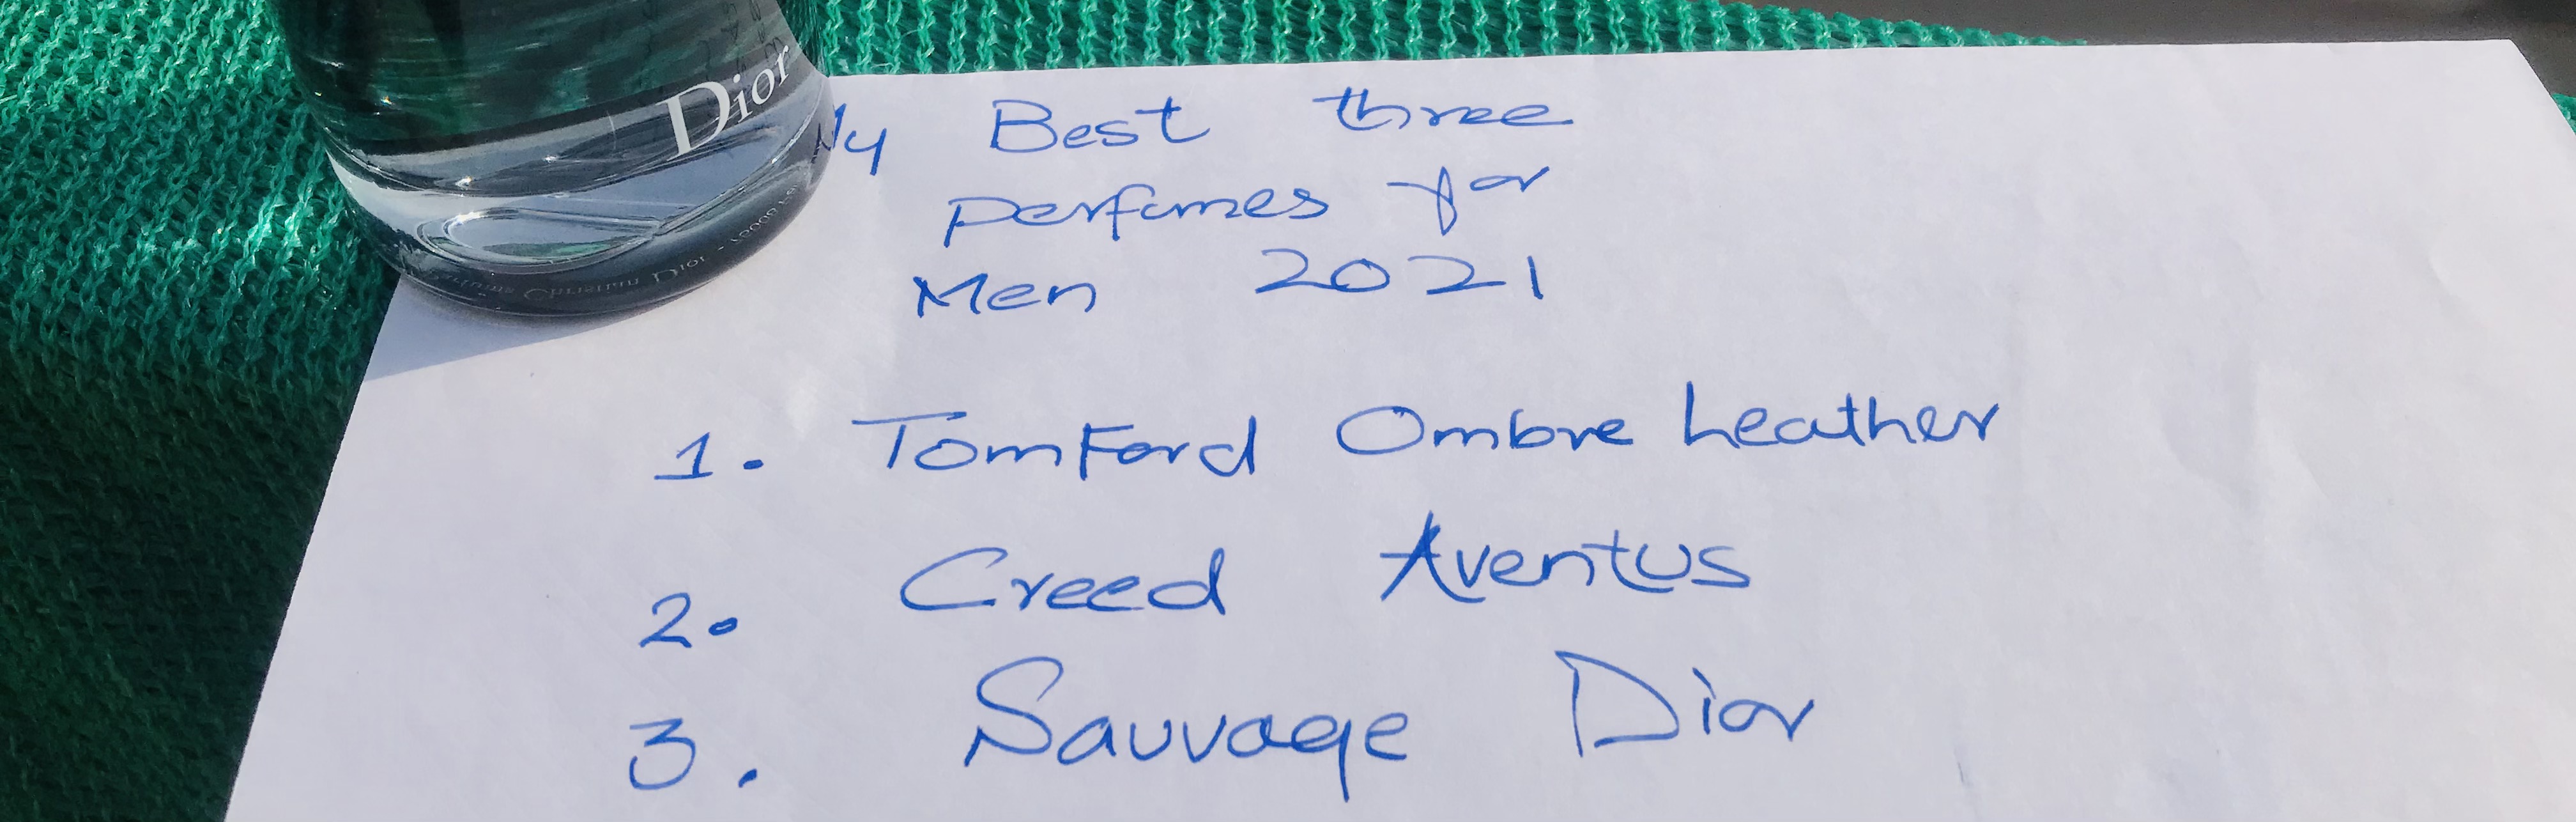 Dior
My Best three
perfumes for
Men 2021
1. Tom Ford Ombre Leather
2. Creed Aventus
3. Sauvage Dior
Christian Dior